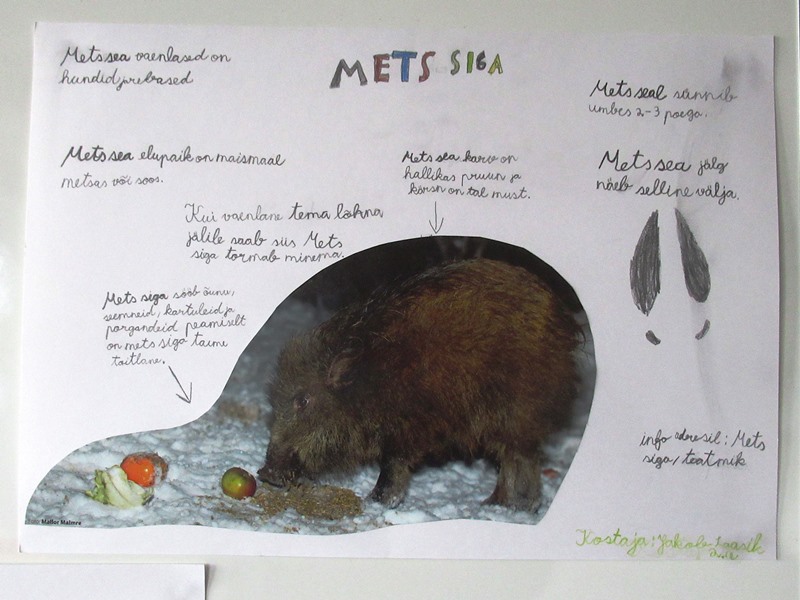 METS SIGA
Mets sea vaenlased on
hundid ja rebased
Mets seal sünnib
umbes 2-3 poega.
Mets sea elupaik on maismaal
metsas või soos.
Mets sea karv on
hallikas pruun ja
kärsn on tal must.
Mets sea jälg
näeb selline välja.
Kui vaenlane tema lõhna
jälile saab siis Mets
siga tormab minema.
Mets siga sööb õunu,
seemneid, kartuleid ja
porgandeid peamiselt
on mets siga taime
toitlane.
info adresil: Mets
siga/teatmik
Mallor Malmre
Kostaja: Jakob